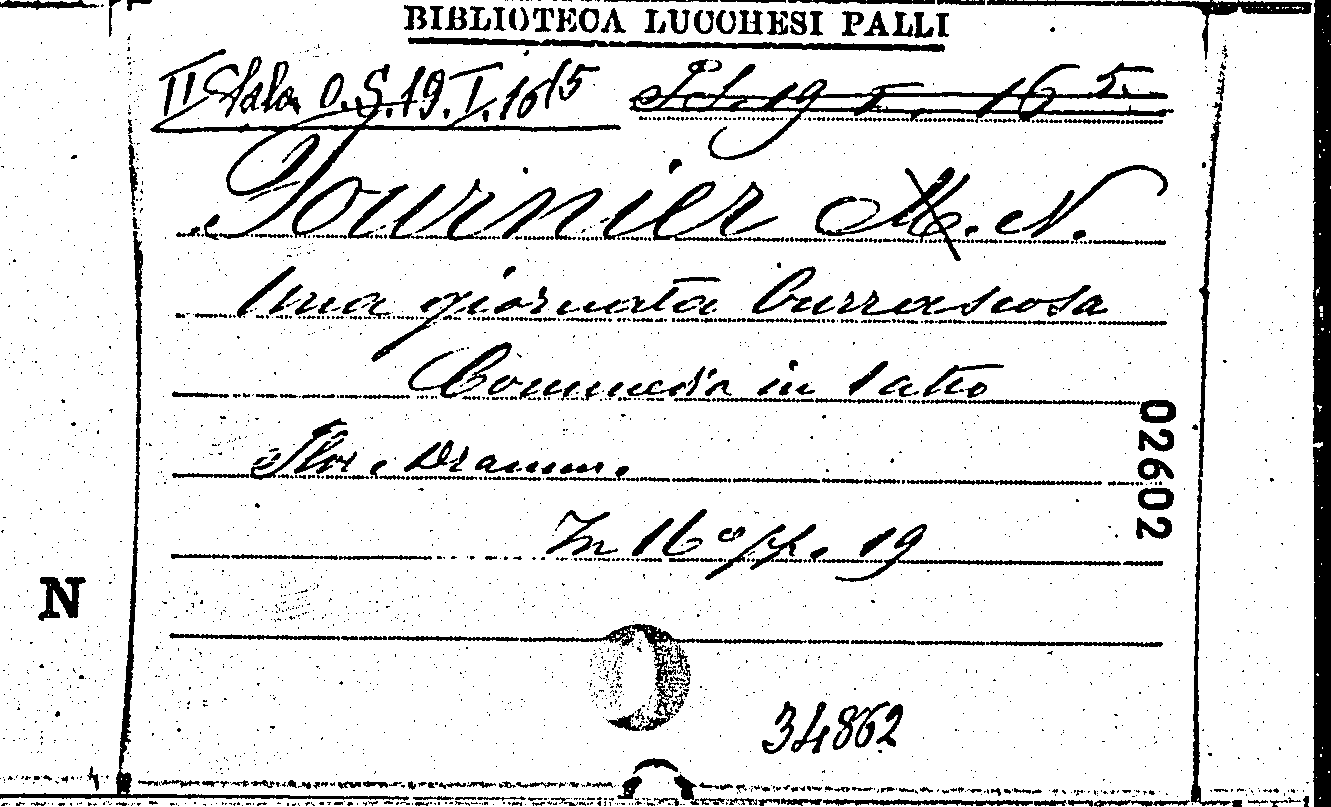 BIBLIOTECA LUCCHESI PALLI
II Sala O.S.19.I.16/5 S.S. 19 I. 16 5.
Fournier M. N.
Una giornata burrascosa
Commedia in 1 atto
Flor. Dramm.
In 16º pp. 19
02602
N
34862